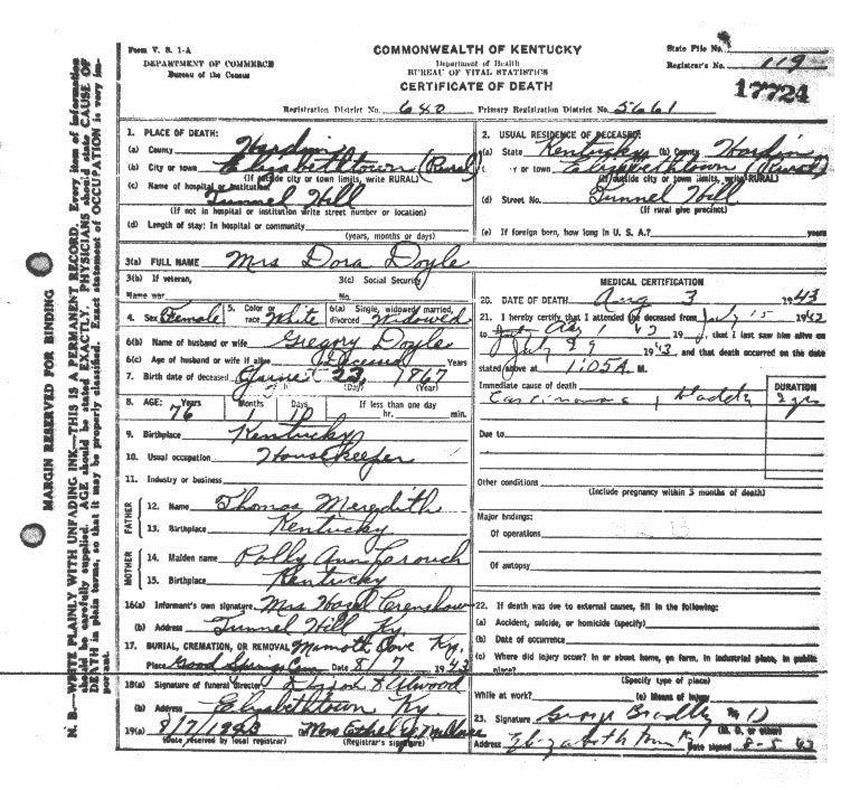 Form V. S. 1-A
DEPARTMENT OF COMMERCE
Bureau of the Census
COMMONWEALTH OF KENTUCKY
Department of Health
BUREAU OF VITAL STATISTICS
CERTIFICATE OF DEATH
State File No.
Registrar's No. 119
17724
Registration District No. 640 Primary Registration District No. 5661
1. PLACE OF DEATH:
(a) County Hardin
(b) City or town Elizabethtown (Rural)
(If outside city or town limits, write RURAL)
(c) Name of hospital or institution
Tunnel Hill
(If not in hospital or institution write street number or location)
(d) Length of stay: In hospital or community
(years, months or days)
2. USUAL RESIDENCE OF DECEASED:
(a) State Kentucky (b) County Hardin
y or town Elizabethtown (Rural)
(If outside city or town limits, write RURAL)
(d) Street No. Tunnel Hill
(If rural give precinct)
(e) If foreign born, how long in U. S. A.? years
3(a) FULL NAME Mrs Dora Doyle
3(b) If veteran,
Name war
3(c) Social Security
No.
4. Sex Female 5. Color or race White 6(a) Single, widowed, married, divorced Widowed
6(b) Name of husband or wife Gregory Doyle
6(c) Age of husband or wife if alive Deceased Years
7. Birth date of deceased June 23, 1867
(Day) (Year)
8. AGE: Years Months Days If less than one day
76 hr. min.
9. Birthplace Kentucky
10. Usual occupation Housekeeper
11. Industry or business
FATHER
12. Name Thomas Meredith
13. Birthplace Kentucky
MOTHER
14. Maiden name Polly Ann Crouch
15. Birthplace Kentucky
16(a) Informant's own signature Mrs Hazel Crenshaw
(b) Address Tunnel Hill Ky.
17. BURIAL, CREMATION, OR REMOVAL Mamoth Cave Ky.
Place Good Springs Cem Date 8/7 1943
18(a) Signature of funeral director & Atwood
(b) Address Elizabethtown Ky
19(a) 8/7/1943 (b) Mrs Ethel
(Date received by local registrar) (Registrar's signature)
MEDICAL CERTIFICATION
20. DATE OF DEATH Aug 3 1943
21. I hereby certify that I attended the deceased from July 15 1942
to Aug 1 43 19 , that I last saw him alive on
July 29 1943, and that death occurred on the date
stated above at 1:05A M.
Immediate cause of death DURATION
Carcinoma, bladder 2 yrs
Due to
Other conditions
(Include pregnancy within 3 months of death)
Major findings:
Of operations
Of autopsy
22. If death was due to external causes, fill in the following:
(a) Accident, suicide, or homicide (specify)
(b) Date of occurrence
(c) Where did injury occur? In or about home, on farm, in industrial place, in public
place?
(Specify type of place)
While at work? (e) Means of injury
23. Signature George Bradley M D
(M. D. or other)
Address Elizabethtown Ky Date signed 8-5 43
MARGIN RESERVED FOR BINDING
N. B.—WRITE PLAINLY WITH UNFADING INK—THIS IS A PERMANENT RECORD. Every item of information
should be carefully supplied. AGE should be stated EXACTLY. PHYSICIANS should state CAUSE OF
DEATH in plain terms, so that it may be properly classified. Exact statement of OCCUPATION is very im-
portant.